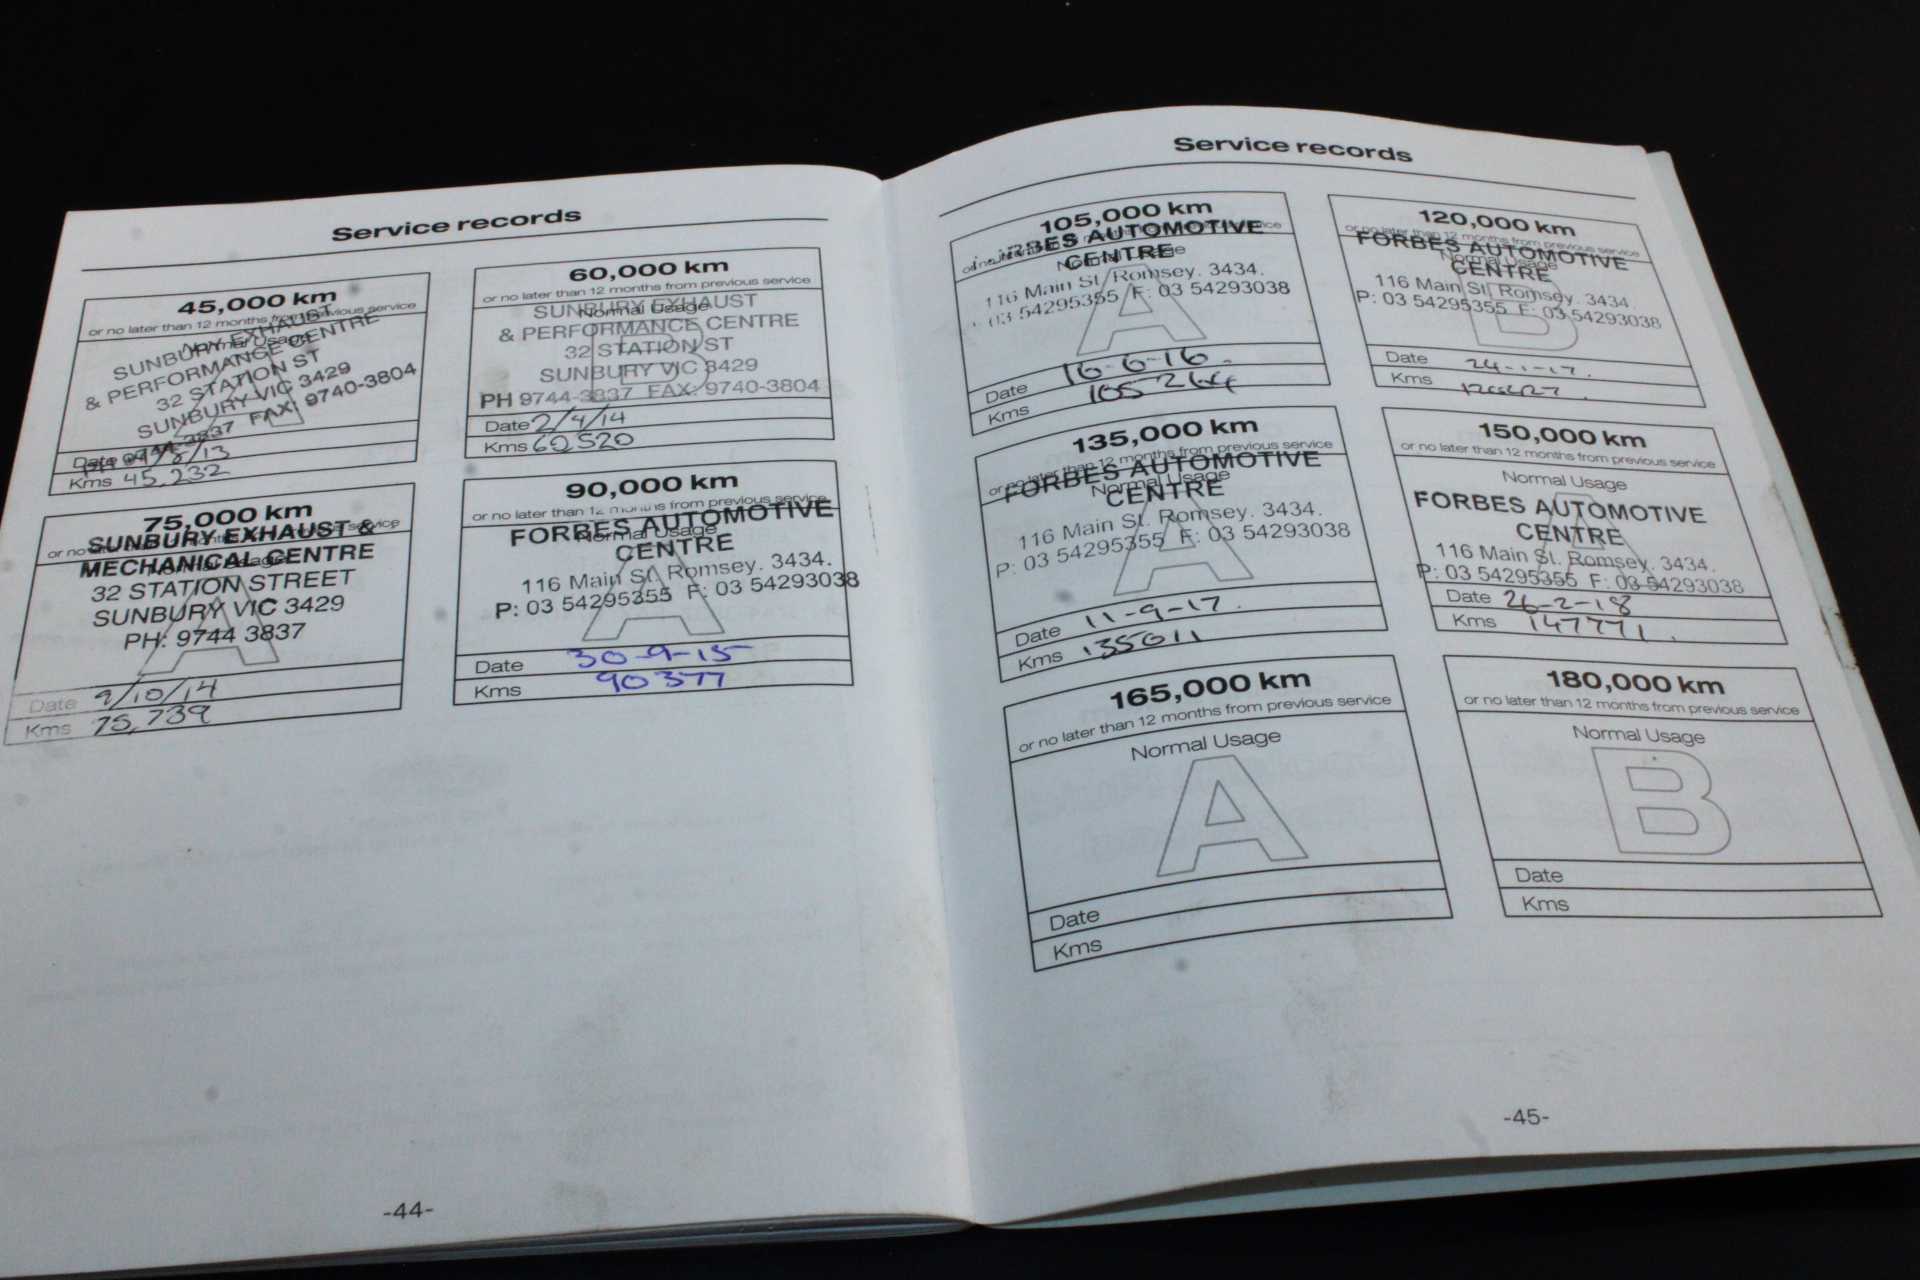 Service records
45,000 km
or no later than 12 months from previous service
Normal Usage
SUNBURY EXHAUST
& PERFORMANCE CENTRE
32 STATION ST
SUNBURY VIC 3429
9744-3837 FAX: 9740-3804
Date
Kms 45,232
60,000 km
or no later than 12 months from previous service
Normal Usage
SUNBURY EXHAUST
& PERFORMANCE CENTRE
32 STATION ST
SUNBURY VIC 3429
PH 9744-3837 FAX: 9740-3804
B
Date 2/4/14
Kms 60,520
75,000 km
or no later than 12 months from previous service
Normal Usage
SUNBURY EXHAUST &
MECHANICAL CENTRE
32 STATION STREET
SUNBURY VIC 3429
PH: 9744 3837
A
Date 9/10/14
Kms 75,739
90,000 km
or no later than 12 months from previous service
Normal Usage
FORBES AUTOMOTIVE
CENTRE
116 Main St. Romsey. 3434.
P: 03 54295355 F: 03 54293038
A
Date 30-9-15
Kms 90377
-44-
Service records
105,000 km
or no later than 12 months from previous service
Normal Usage
FORBES AUTOMOTIVE
CENTRE
116 Main St. Romsey. 3434.
P: 03 54295355 F: 03 54293038
A
Date 16-6-16
Kms 105264
120,000 km
or no later than 12 months from previous service
Normal Usage
FORBES AUTOMOTIVE
CENTRE
116 Main St. Romsey. 3434.
P: 03 54295355 F: 03 54293038
B
Date 24-1-17.
Kms
135,000 km
or no later than 12 months from previous service
Normal Usage
FORBES AUTOMOTIVE
CENTRE
116 Main St. Romsey. 3434.
P: 03 54295355 F: 03 54293038
A
Date 11-9-17.
Kms 135011
150,000 km
or no later than 12 months from previous service
Normal Usage
FORBES AUTOMOTIVE
CENTRE
116 Main St. Romsey. 3434.
P: 03 54295355 F: 03 54293038
A
Date 26-2-18
Kms 147771.
165,000 km
or no later than 12 months from previous service
Normal Usage
A
Date
Kms
180,000 km
or no later than 12 months from previous service
Normal Usage
B
Date
Kms
-45-